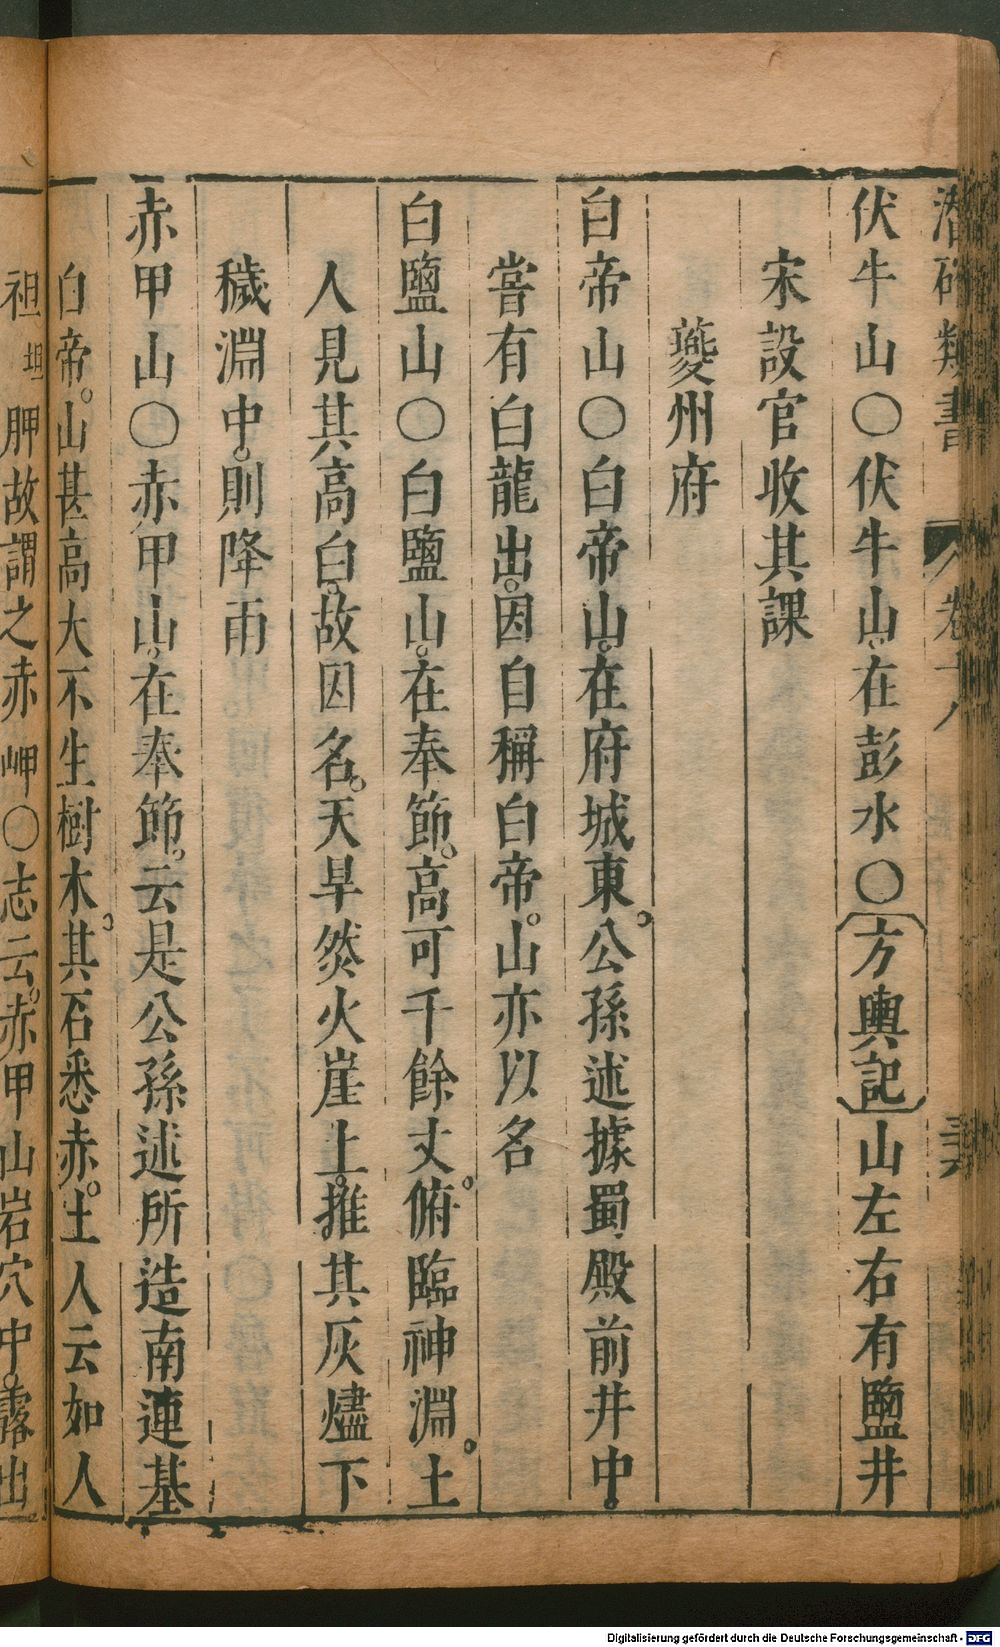 潛確類書 卷十八
伏牛山〇伏牛山在彭水〇〔方輿記〕山左右有鹽井
宋設官收其課
夔州府
白帝山〇白帝山。在府城東。公孫述據蜀殿前井中。
嘗有白龍出。因自稱白帝。山亦以名
白鹽山〇白鹽山。在奉節。高可千餘丈。俯臨神淵。土
人見其高白。故因名。天旱燃火崖上。推其灰燼下
穢淵中。則降雨
赤甲山〇赤甲山。在奉節。云是公孫述所造南連基
白帝。山甚高大不生樹木。其石悉赤。土人云如人
袒坦胛故謂之赤岬〇志云。赤甲山岩穴中。露出
Digitalisierung gefördert durch die Deutsche Forschungsgemeinschaft - DFG